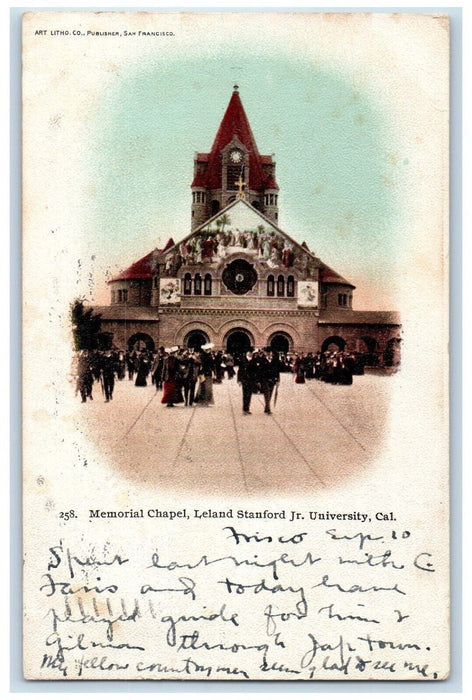 ART LITHO. CO., PUBLISHER, SAN FRANCISCO.
258. Memorial Chapel, Leland Stanford Jr. University, Cal.
Frisco Sep. 10
Spent last night with C
and today have
played guide for him &
Gilman through Jap town.
My fellow countrymen seem glad to see me,